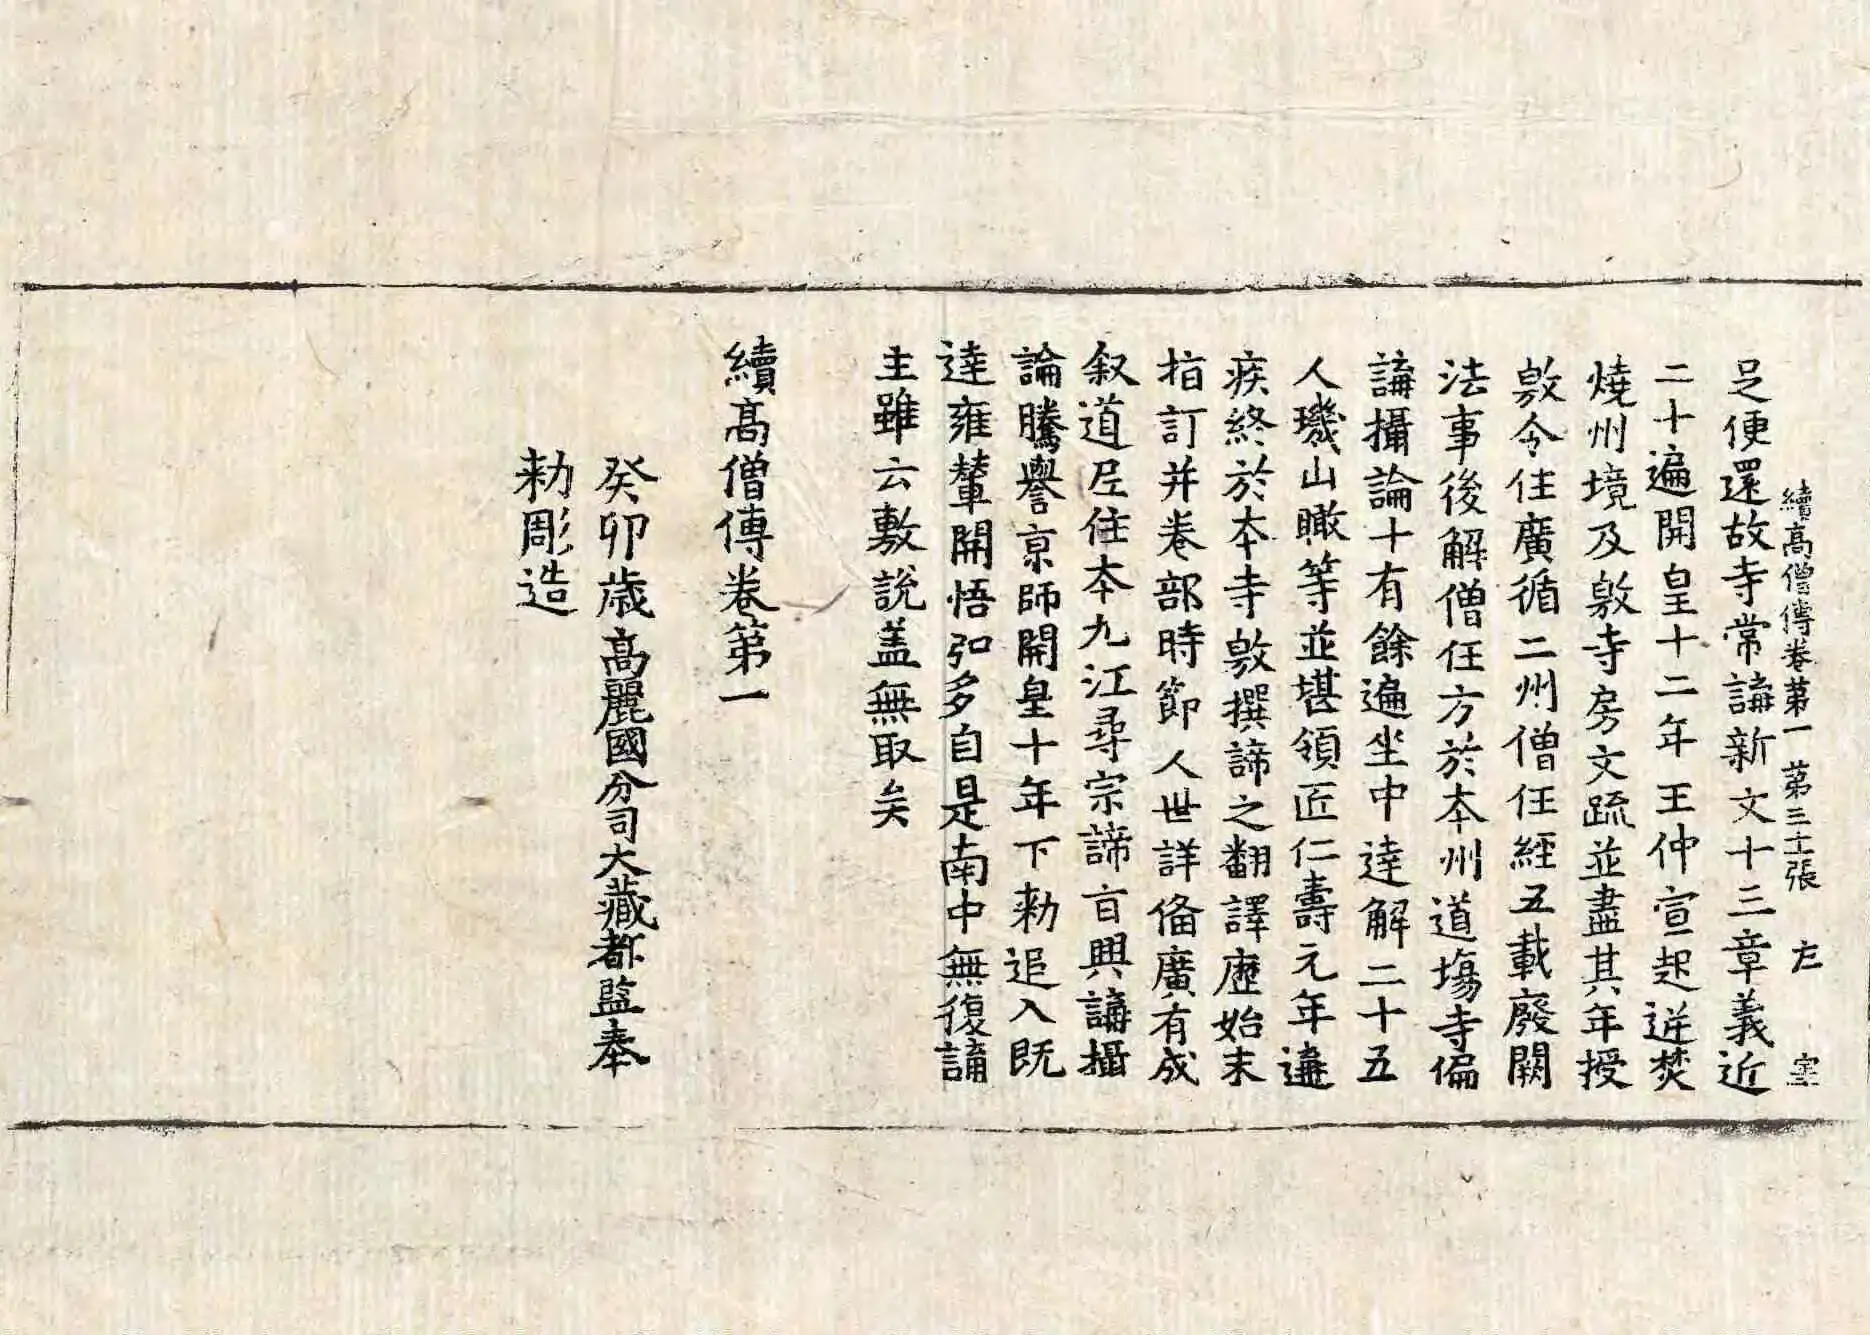 續高僧傳卷第一 第三十張 左
足便還故寺常講新文十三章義近
二十遍開皇十二年王仲宣起逆焚
燒州境及敫寺房文疏並盡其年授
敫令住廣循二州僧任經五載廢闕
法事後解僧任方於本州道場寺偏
講攝論十有餘遍坐中達解二十五
人璣山瞰等並堪領匠仁壽元年遘
疾終於本寺敫撰諦之翻譯歷始末
指訂并卷部時節人世詳俻廣有成
叙道尼住本九江尋宗諦旨興講攝
論騰譽京師開皇十年下勑追入旣
達雍輦開悟弘多自是南中無復講
主雖云敷說盖無取矣
續高僧傳卷第一
癸卯歲高麗國分司大藏都監奉
勑彫造